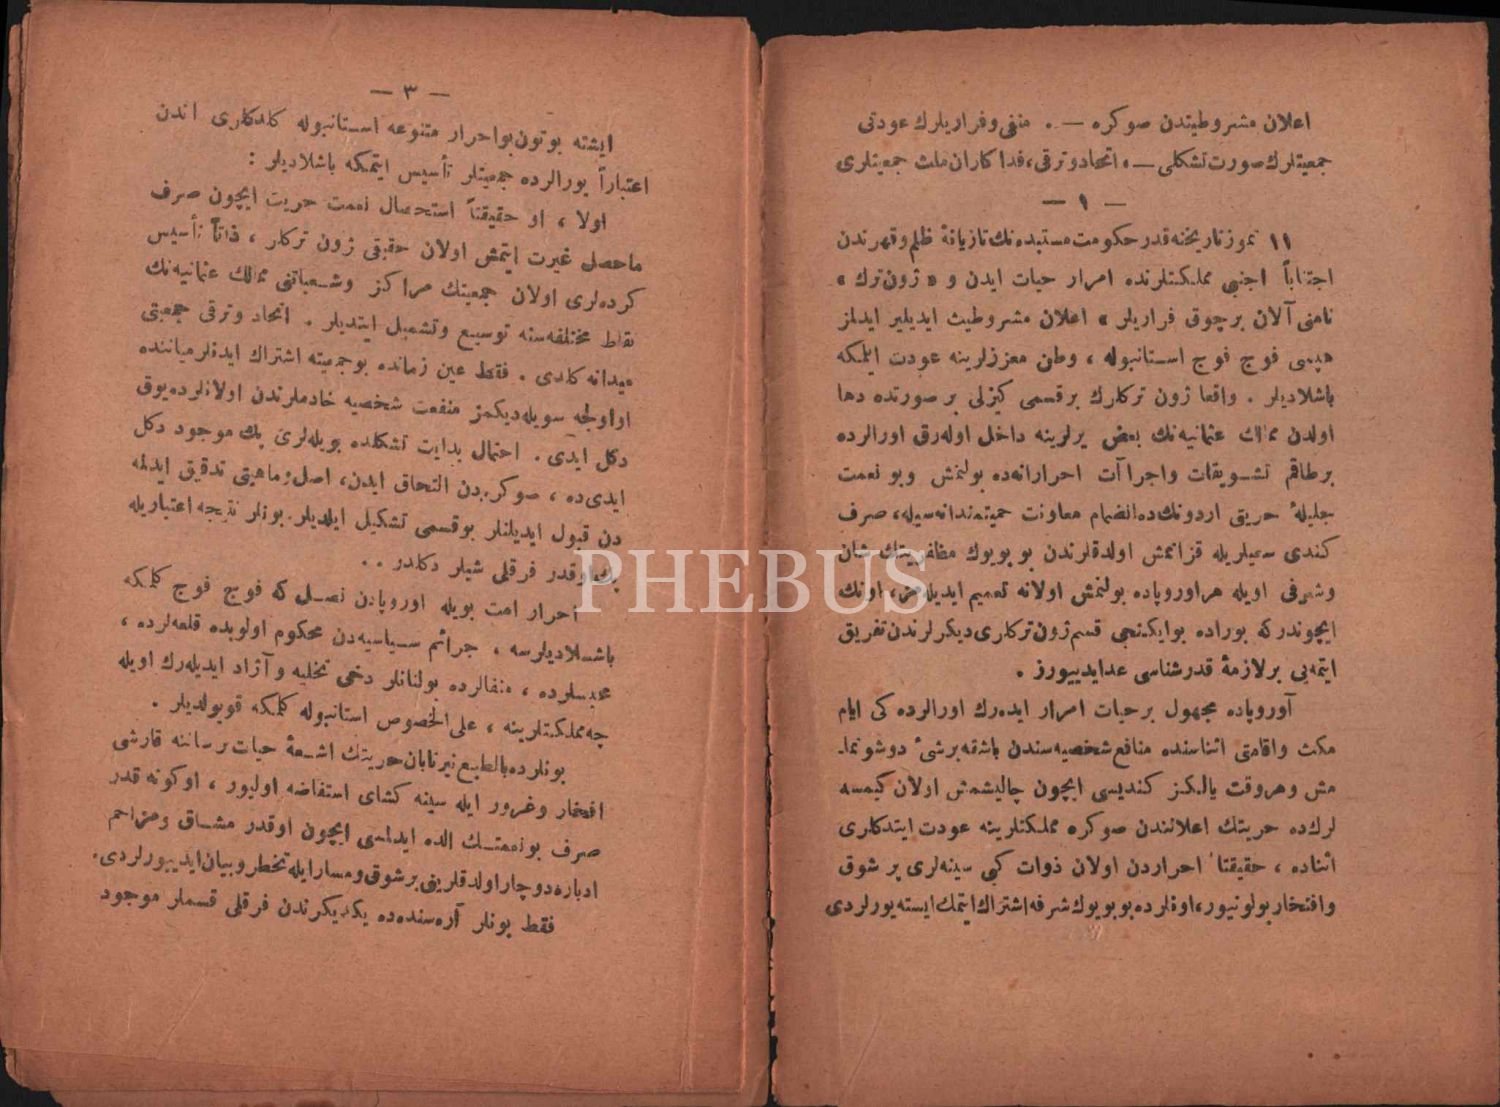 اعلان مشروطیتدن صوکره — . منفی وفراریلرك عودتی
جمعیتلرك صورت تشكلی — ، اتحاد وترقی ، فداکاران ملت جمعیتلری
— ١ —
١١ تموز تاریخنه قدر حکومت مستبده نك تازیانهٔ ظلم وقهرندن
اجتناباً اجنبی مملکتلرنده امرار حیات ایدن و « ژون ترك »
نامنی آلان برچوق فراریلر ، اعلان مشروطیت ایدیلیر ایدلمز
هپسی فوج فوج استانبوله ، وطن معززلرینه عودت ایلمکه
باشلادیلر . واقعا ژون ترکلرك برقسمی کیزلی برصورتده دها
اولدن ممالك عثمانیه نك بعض یرلرینه داخل اوله رق اورالرده
برطاقم تشویقات واجراآت احرارانه ده بولنمش وبو نعمت
جلیلهٔ حریتی اردونك ده انضمام معاونت حمیتمندانه سیله ، صرف
کندی سعیلریله قزانمش اولدقلرندن بو بویوك مظفریتك شان
وشرفی اویله هر اوروپاده بولنمش اولانه تعمیم ایدیله مز ، اونك
ایچوندرکه بوراده بوایکنجی قسم ژون ترکلری دیکرلرندن تفریق
ایتمه یی برلازمهٔ قدرشناسی عدایدییورز .
آوروپاده مجهول برحیات امرار ایدەرك اورالرده کی ایام
مکث واقامتی اثناسنده منافع شخصیه سندن باشقه برشیٔ دوشونما-
مش وهروقت یالکز کندیسی ایچون چالیشمش اولان کیمسه
لرك ده حریتك اعلانندن صوکره مملکتلرینه عودت ایتدکلری
اثناده ، حقیقتاً احراردن اولان ذوات کبی سینه لری پر شوق
وافتخار بولونیور ، اونلرده بو بویوك شرفه اشتراك ایتمك ایسته یورلردی
— ٣ —
ایشته بوتون بواحرار متنوعه استانبوله کلدکلری اندن
اعتباراً یورالرده جمعیتلر تأسیس ایتمکه باشلادیلر :
اولا ، او حقیقتاً استحصال نعمت حریت ایچون صرف
ماحصل غیرت ایتمش اولان حقیقی ژون ترکلر ، ذاتاً تأسیس
کرده لری اولان جمعیتك مراکز وشعباتنی ممالك عثمانیه نك
نقاط مختلفه سنه توسیع وتشمیل ایتدیلر . اتحاد وترقی جمعیتی
میدانه کلدی . فقط عین زمانده بوجمعیته اشتراك ایدنلرمیاننده
اواولجه سویله دیکمز منفعت شخصیه خادملرندن اولانلرده یوق
دکل ایدی . احتمال بدایت تشکلده بویله لری پك موجود دکل
ایدی ده ، صوکره دن التحاق ایدن ، اصل وماهیتی تدقیق ایدلمه
دن قبول ایدیلنلر بوقسمی تشکیل ایلدیلر . بونلر نتیجه اعتباریله
پك اوقدر فرقلی شیلر دکلدر . .
احرار امت بویله اوروپادن نصل که فوج فوج کلمکه
باشلادیلرسه ، جرائم سیاسیه دن محکوم اولوبده قلعه لرده ،
محبسلرده ، منفالرده بولنانلر دخی تخلیه وآزاد ایدیله رك اویله
جه مملکتلرینه ، علی الخصوص استانبوله کلمکه قویولدیلر .
بونلرده بالطبع نیر تابان حریتك اشعهٔ حیات برساننه قارشی
افتخار وغرور ایله سینه کشای استفاضه اولیور ، اوکونه قدر
صرف بونعمتك الده ایدلمسی ایچون اوقدر مشاق ومزاحم
ادباره دوچار اولدقلرینی برشوق ومسار ایله تخطر وبیان ایدییورلردی.
فقط بونلر آره سنده ده یکدیکرندن فرقلی قسملر موجود
PHEBUS